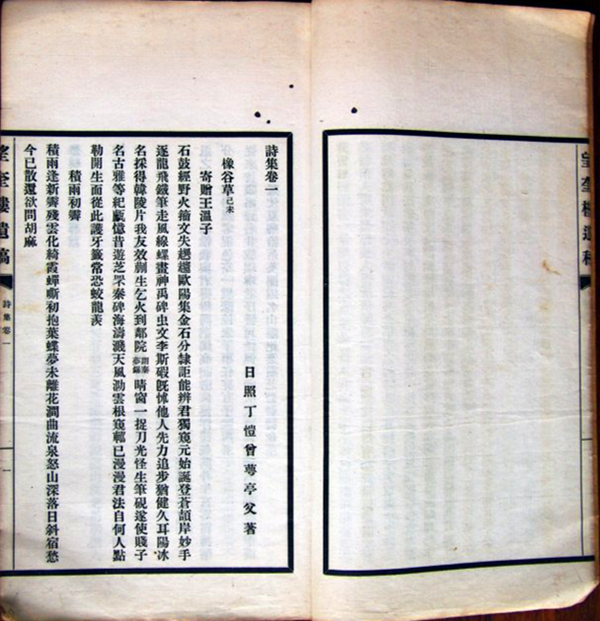 望奎樓遺
詩集卷一
日照丁愷曾萼亭父著
橡谷草己未
寄贈王溫子
石鼓經野火籀文失歐陽集金石分隸詎能辨君獨窺元始誕登蒼頡岸妙手
逐龍飛鐵筆走風線蝶畫神禹碑虫文李斯碬旣怵他人先力追步猶健久耳陽冰
名採得韓陵片我友效蒯生乞火到鄰院晴窗一捉刀光怪生筆硯遂使賤子
名古雅等紀甗憶昔遊芝罘秦碑海濤濺天風泐雲根窺已漫漫君法自何人點
勒開生面從此護牙籤常恐蛟龍羨
積雨初霽
積雨逢新霽殘雲化綺霞蟬嘶初抱葉蝶夢未離花澗曲流泉怒山深落日斜宿愁
今已散還欲問胡麻
望奎樓遺稿
詩集卷一
一